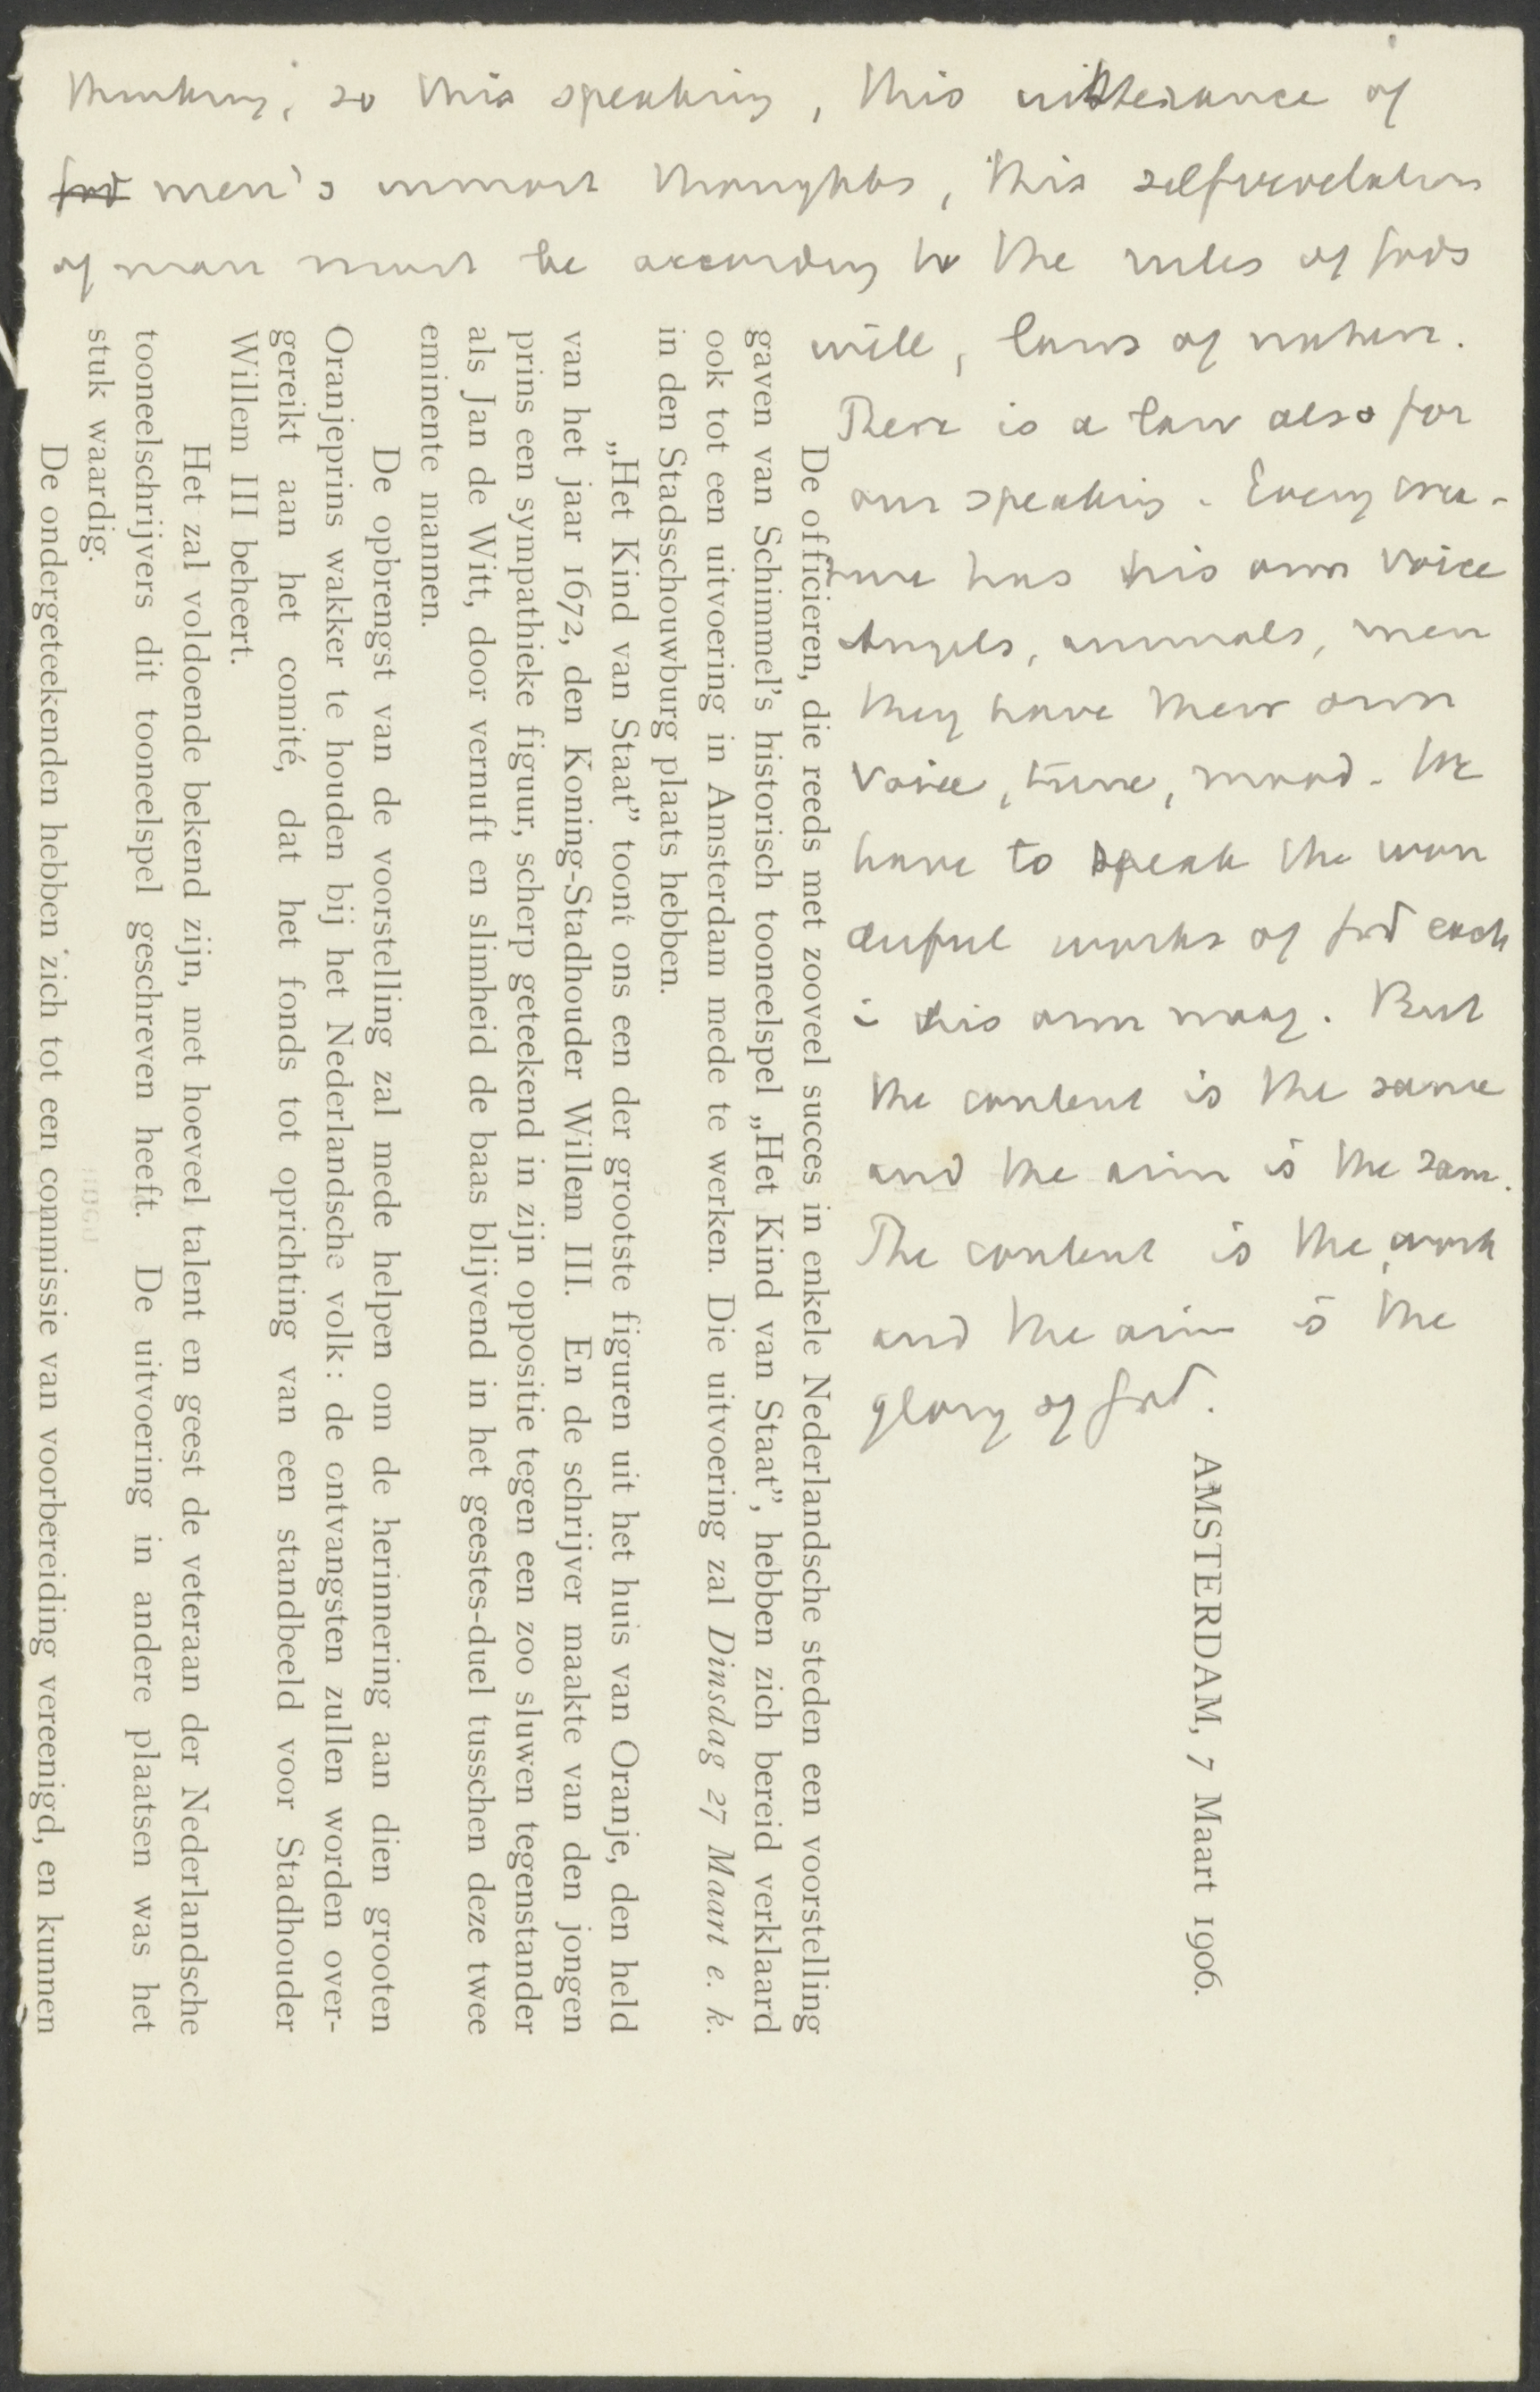 thinking, so this speaking, this utterance of
God men's inmost thoughts, this selfrevelation
of man must be according to the rules of Gods
will, laws of nature.
There is a law also for
our speaking. Every crea-
ture has his own voice
Angels, animals, men
they have their own
voice, tune, mood. We
have to speak the won
derful works of God each
in his own way. But
the content is the same
and the aim is the same.
The content is the work
and the aim is the
glory of God.
AMSTERDAM, 7 Maart 1906.
De officieren, die reeds met zooveel succes in enkele Nederlandsche steden een voorstelling
gaven van Schimmel's historisch tooneelspel „Het Kind van Staat”, hebben zich bereid verklaard
ook tot een uitvoering in Amsterdam mede te werken. Die uitvoering zal Dinsdag 27 Maart e. k.
in den Stadsschouwburg plaats hebben.
„Het Kind van Staat” toont ons een der grootste figuren uit het huis van Oranje, den held
van het jaar 1672, den Koning-Stadhouder Willem III. En de schrijver maakte van den jongen
prins een sympathieke figuur, scherp geteekend in zijn oppositie tegen een zoo sluwen tegenstander
als Jan de Witt, door vernuft en slimheid de baas blijvend in het geestes-duel tusschen deze twee
eminente mannen.
De opbrengst van de voorstelling zal mede helpen om de herinnering aan dien grooten
Oranjeprins wakker te houden bij het Nederlandsche volk: de ontvangsten zullen worden over-
gereikt aan het comité, dat het fonds tot oprichting van een standbeeld voor Stadhouder
Willem III beheert.
Het zal voldoende bekend zijn, met hoeveel talent en geest de veteraan der Nederlandsche
tooneelschrijvers dit tooneelspel geschreven heeft. De uitvoering in andere plaatsen was het
stuk waardig.
De ondergeteekenden hebben zich tot een commissie van voorbereiding vereenigd, en kunnen